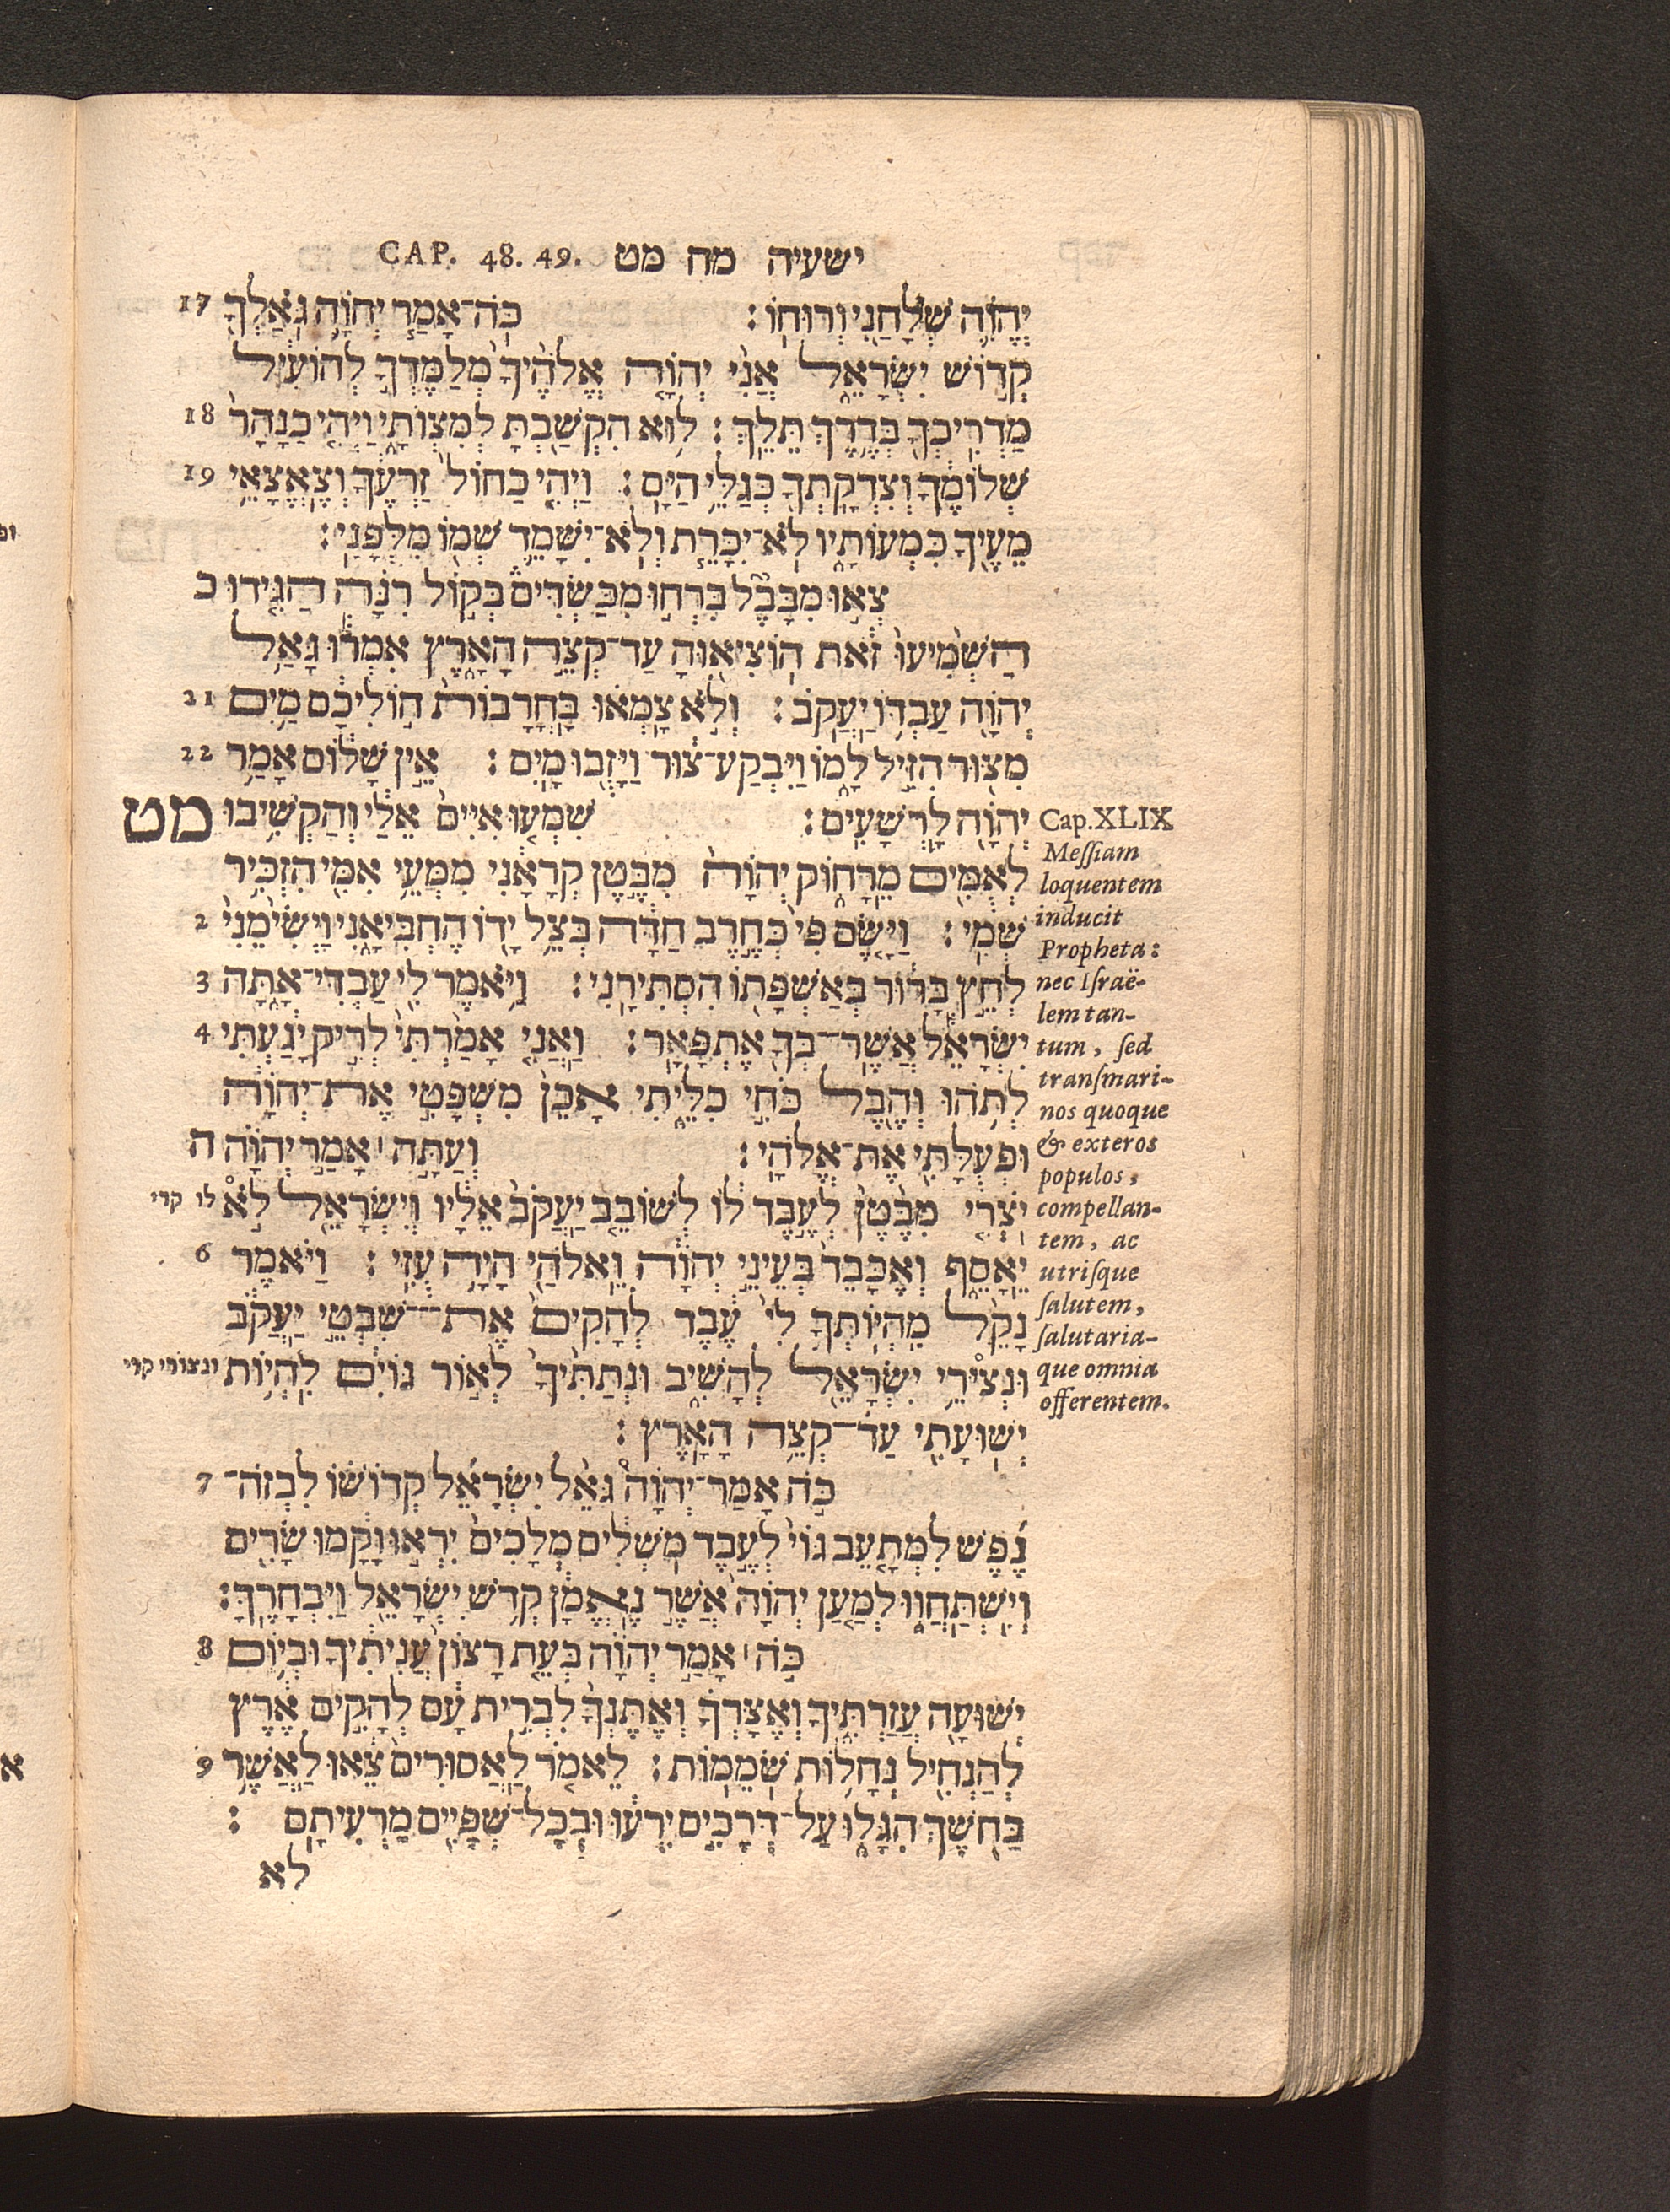 CAP. 48. 49. ישעיה מח מט
יְהֹוִ֛ה שְׁלָחַ֖נִי וְרוּחֽוֹ׃ כֹּֽה־אָמַ֧ר יְהֹוָ֛ה גֹּאַלְךָ֖ 17
קְד֣וֹשׁ יִשְׂרָאֵ֑ל אֲנִ֨י יְהֹוָ֤ה אֱלֹהֶ֙יךָ֙ מְלַמֶּדְךָ֣ לְהוֹעִ֔יל
מַדְרִֽיכְךָ֖ בְּדֶ֥רֶךְ תֵּלֵֽךְ׃ ל֥וּא הִקְשַׁ֖בְתָּ לְמִצְוֺתָ֑י וַיְהִ֤י כַנָּהָר֙ 18
שְׁלוֹמֶ֔ךָ וְצִדְקָתְךָ֖ כְּגַלֵּ֥י הַיָּֽם׃ וַיְהִ֤י כַחוֹל֙ זַרְעֶ֔ךָ וְצֶאֱצָאֵ֥י 19
מֵעֶ֖יךָ כִּמְעוֹתָ֑יו לֹֽא־יִכָּרֵ֧ת וְֽלֹא־יִשָּׁמֵ֛ד שְׁמ֖וֹ מִלְּפָנָֽי׃
צְא֣וּ מִבָּבֶל֮ בִּרְח֣וּ מִכַּשְׂדִּים֒ בְּק֣וֹל רִנָּ֗ה הַגִּ֤ידוּ כ
הַשְׁמִ֙יעוּ֙ זֹ֔את הֽוֹצִיא֖וּהָ עַד־קְצֵ֣ה הָאָ֑רֶץ אִמְר֕וּ גָּאַ֥ל
יְהֹוָ֖ה עַבְדּ֥וֹ יַעֲקֹֽב׃ וְלֹ֣א צָמְא֗וּ בׇּחֳרָבוֹת֙ הֽוֹלִיכָ֔ם מַ֥יִם 21
מִצּ֖וּר הִזִּ֣יל לָ֑מוֹ וַיִּ֨בְקַע־צ֔וּר וַיָּזֻ֖בוּ מָֽיִם׃ אֵ֣ין שָׁל֔וֹם אָמַ֥ר 22
יְהֹוָ֖ה לָרְשָׁעִֽים׃ שִׁמְע֤וּ אִיִּים֙ אֵלַ֔י וְהַקְשִׁ֥יבוּ מט
לְאֻמִּ֖ים מֵרָח֑וֹק יְהֹוָה֙ מִבֶּ֣טֶן קְרָאָ֔נִי מִמְּעֵ֥י אִמִּ֖י הִזְכִּ֥יר
שְׁמִֽי׃ וַיָּ֤שֶׂם פִּי֙ כְּחֶ֣רֶב חַדָּ֔ה בְּצֵ֥ל יָד֖וֹ הֶחְבִּיאָ֑נִי וַיְשִׂימֵ֙נִי֙ 2
לְחֵ֣ץ בָּר֔וּר בְּאַשְׁפָּת֖וֹ הִסְתִּירָֽנִי׃ וַיֹּ֥אמֶר לִ֖י עַבְדִּי־אָ֑תָּה 3
יִשְׂרָאֵ֕ל אֲשֶׁר־בְּךָ֖ אֶתְפָּאָֽר׃ וַאֲנִ֤י אָמַ֙רְתִּי֙ לְרִ֣יק יָגַ֔עְתִּי 4
לְתֹ֥הוּ וְהֶ֖בֶל כֹּחִ֣י כִלֵּ֑יתִי אָכֵן֙ מִשְׁפָּטִ֣י אֶת־יְהֹוָ֔ה
וּפְעֻלָּתִ֖י אֶת־אֱלֹהָֽי׃ וְעַתָּ֣ה ׀ אָמַ֣ר יְהֹוָ֗ה ה
יֹצְרִ֤י מִבֶּ֙טֶן֙ לְעֶ֣בֶד ל֔וֹ לְשׁוֹבֵ֤ב יַֽעֲקֹב֙ אֵלָ֔יו וְיִשְׂרָאֵ֖ל לֹ֣א לו קרי
יֵאָסֵ֑ף וְאֶכָּבֵד֙ בְּעֵינֵ֣י יְהֹוָ֔ה וֵאלֹהַ֖י הָיָ֥ה עֻזִּֽי׃ וַיֹּ֗אמֶר 6
נָקֵ֨ל מִֽהְיוֹתְךָ֥ לִי֙ עֶ֔בֶד לְהָקִים֙ אֶת־שִׁבְטֵ֣י יַעֲקֹ֔ב
וּנְצִירֵ֥י יִשְׂרָאֵ֖ל לְהָשִׁ֑יב וּנְתַתִּ֙יךָ֙ לְא֣וֹר גּוֹיִ֔ם לִֽהְי֥וֹת ונצורי קרי
יְשׁוּעָתִ֖י עַד־קְצֵ֥ה הָאָֽרֶץ׃
כֹּ֣ה אָֽמַר־יְהֹוָה֩ גֹּאֵ֨ל יִשְׂרָאֵ֜ל קְדוֹשׁ֗וֹ לִבְזֹה־ 7
נֶ֜פֶשׁ לִמְתָ֤עֵֽב גּוֹי֙ לְעֶ֣בֶד מֹֽשְׁלִ֔ים מְלָכִים֙ יִרְא֣וּ וָקָ֔מוּ שָׂרִ֖ים
וְיִֽשְׁתַּחֲו֑וּ לְמַ֤עַן יְהֹוָה֙ אֲשֶׁ֣ר נֶאֱמָ֔ן קְדֹ֥שׁ יִשְׂרָאֵ֖ל וַיִּבְחָרֶֽךָּ׃
כֹּ֣ה ׀ אָמַ֣ר יְהֹוָ֗ה בְּעֵ֤ת רָצוֹן֙ עֲנִיתִ֔יךָ וּבְי֥וֹם 8
יְשׁוּעָ֖ה עֲזַרְתִּ֑יךָ וְאֶצׇּרְךָ֗ וְאֶתֶּנְךָ֙ לִבְרִ֣ית עָ֔ם לְהָקִ֣ים אֶ֔רֶץ
לְהַנְחִ֖יל נְחָל֥וֹת שֹׁמֵמֽוֹת׃ לֵאמֹ֤ר לַֽאֲסוּרִים֙ צֵ֔אוּ לַאֲשֶׁ֥ר 9
בַּחֹ֖שֶׁךְ הִגָּל֑וּ עַל־דְּרָכִ֣ים יִרְע֔וּ וּבְכׇל־שְׁפָיִ֖ים מַרְעִיתָֽם׃
לא
Cap. XLIX
Messiam
loquentem
inducit
Propheta:
nec Israë-
lem tan-
tum, sed
transmari-
nos quoque
& exteros
populos,
compellan-
tem, ac
utrisque
salutem,
salutaria-
que omnia
offerentem.